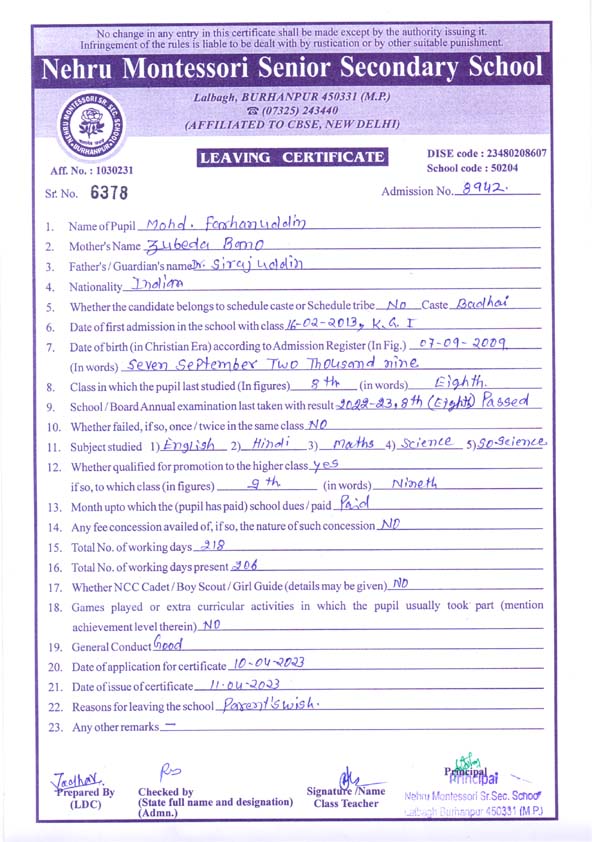 No change in any entry in this certificate shall be made except by the authority issuing it.
Infringement of the rules is liable to be dealt with by rustication or by other suitable punishment.
Nehru Montessori Senior Secondary School
Lalbagh, BURHANPUR 450331 (M.P.)
☎ (07325) 243440
(AFFILIATED TO CBSE, NEW DELHI)
NEHRU MONTESSORI SR. SEC. SCHOOL
BURHANPUR
LEAVING CERTIFICATE
DISE code : 23480208607
School code : 50204
Aff. No. : 1030231
Sr. No. 6378
Admission No. 8942.
1. Name of Pupil Mohd. Farhanuddin
2. Mother's Name Zubeda Bano
3. Father's / Guardian's name Dr. Sirajuddin
4. Nationality Indian
5. Whether the candidate belongs to schedule caste or Schedule tribe No Caste Badhai
6. Date of first admission in the school with class 16-02-2013, K.G. I
7. Date of birth (in Christian Era) according to Admission Register (In Fig.) 07-09-2009
(In words) Seven September Two Thousand nine
8. Class in which the pupil last studied (In figures) 8th (in words) Eighth.
9. School / Board Annual examination last taken with result 2022-23, 8th (Eighth) Passed
10. Whether failed, if so, once / twice in the same class NO
11. Subject studied 1) English 2) Hindi 3) Maths 4) Science 5) SO-Science
12. Whether qualified for promotion to the higher class yes
if so, to which class (in figures) 9th (in words) Nineth
13. Month upto which the (pupil has paid) school dues / paid Paid
14. Any fee concession availed of, if so, the nature of such concession NO
15. Total No. of working days 218
16. Total No. of working days present 206
17. Whether NCC Cadet / Boy Scout / Girl Guide (details may be given) NO
18. Games played or extra curricular activities in which the pupil usually took part (mention
achievement level therein) NO
19. General Conduct Good
20. Date of application for certificate 10-04-2023
21. Date of issue of certificate 11-04-2023
22. Reasons for leaving the school Parent's wish.
23. Any other remarks —
Prepared By
(LDC)
Checked by
(State full name and designation)
(Admn.)
Signature /Name
Class Teacher
Principal
Principal
Nehru Montessori Sr.Sec. School
Lalbagh Burhanpur 450331 (M.P.)